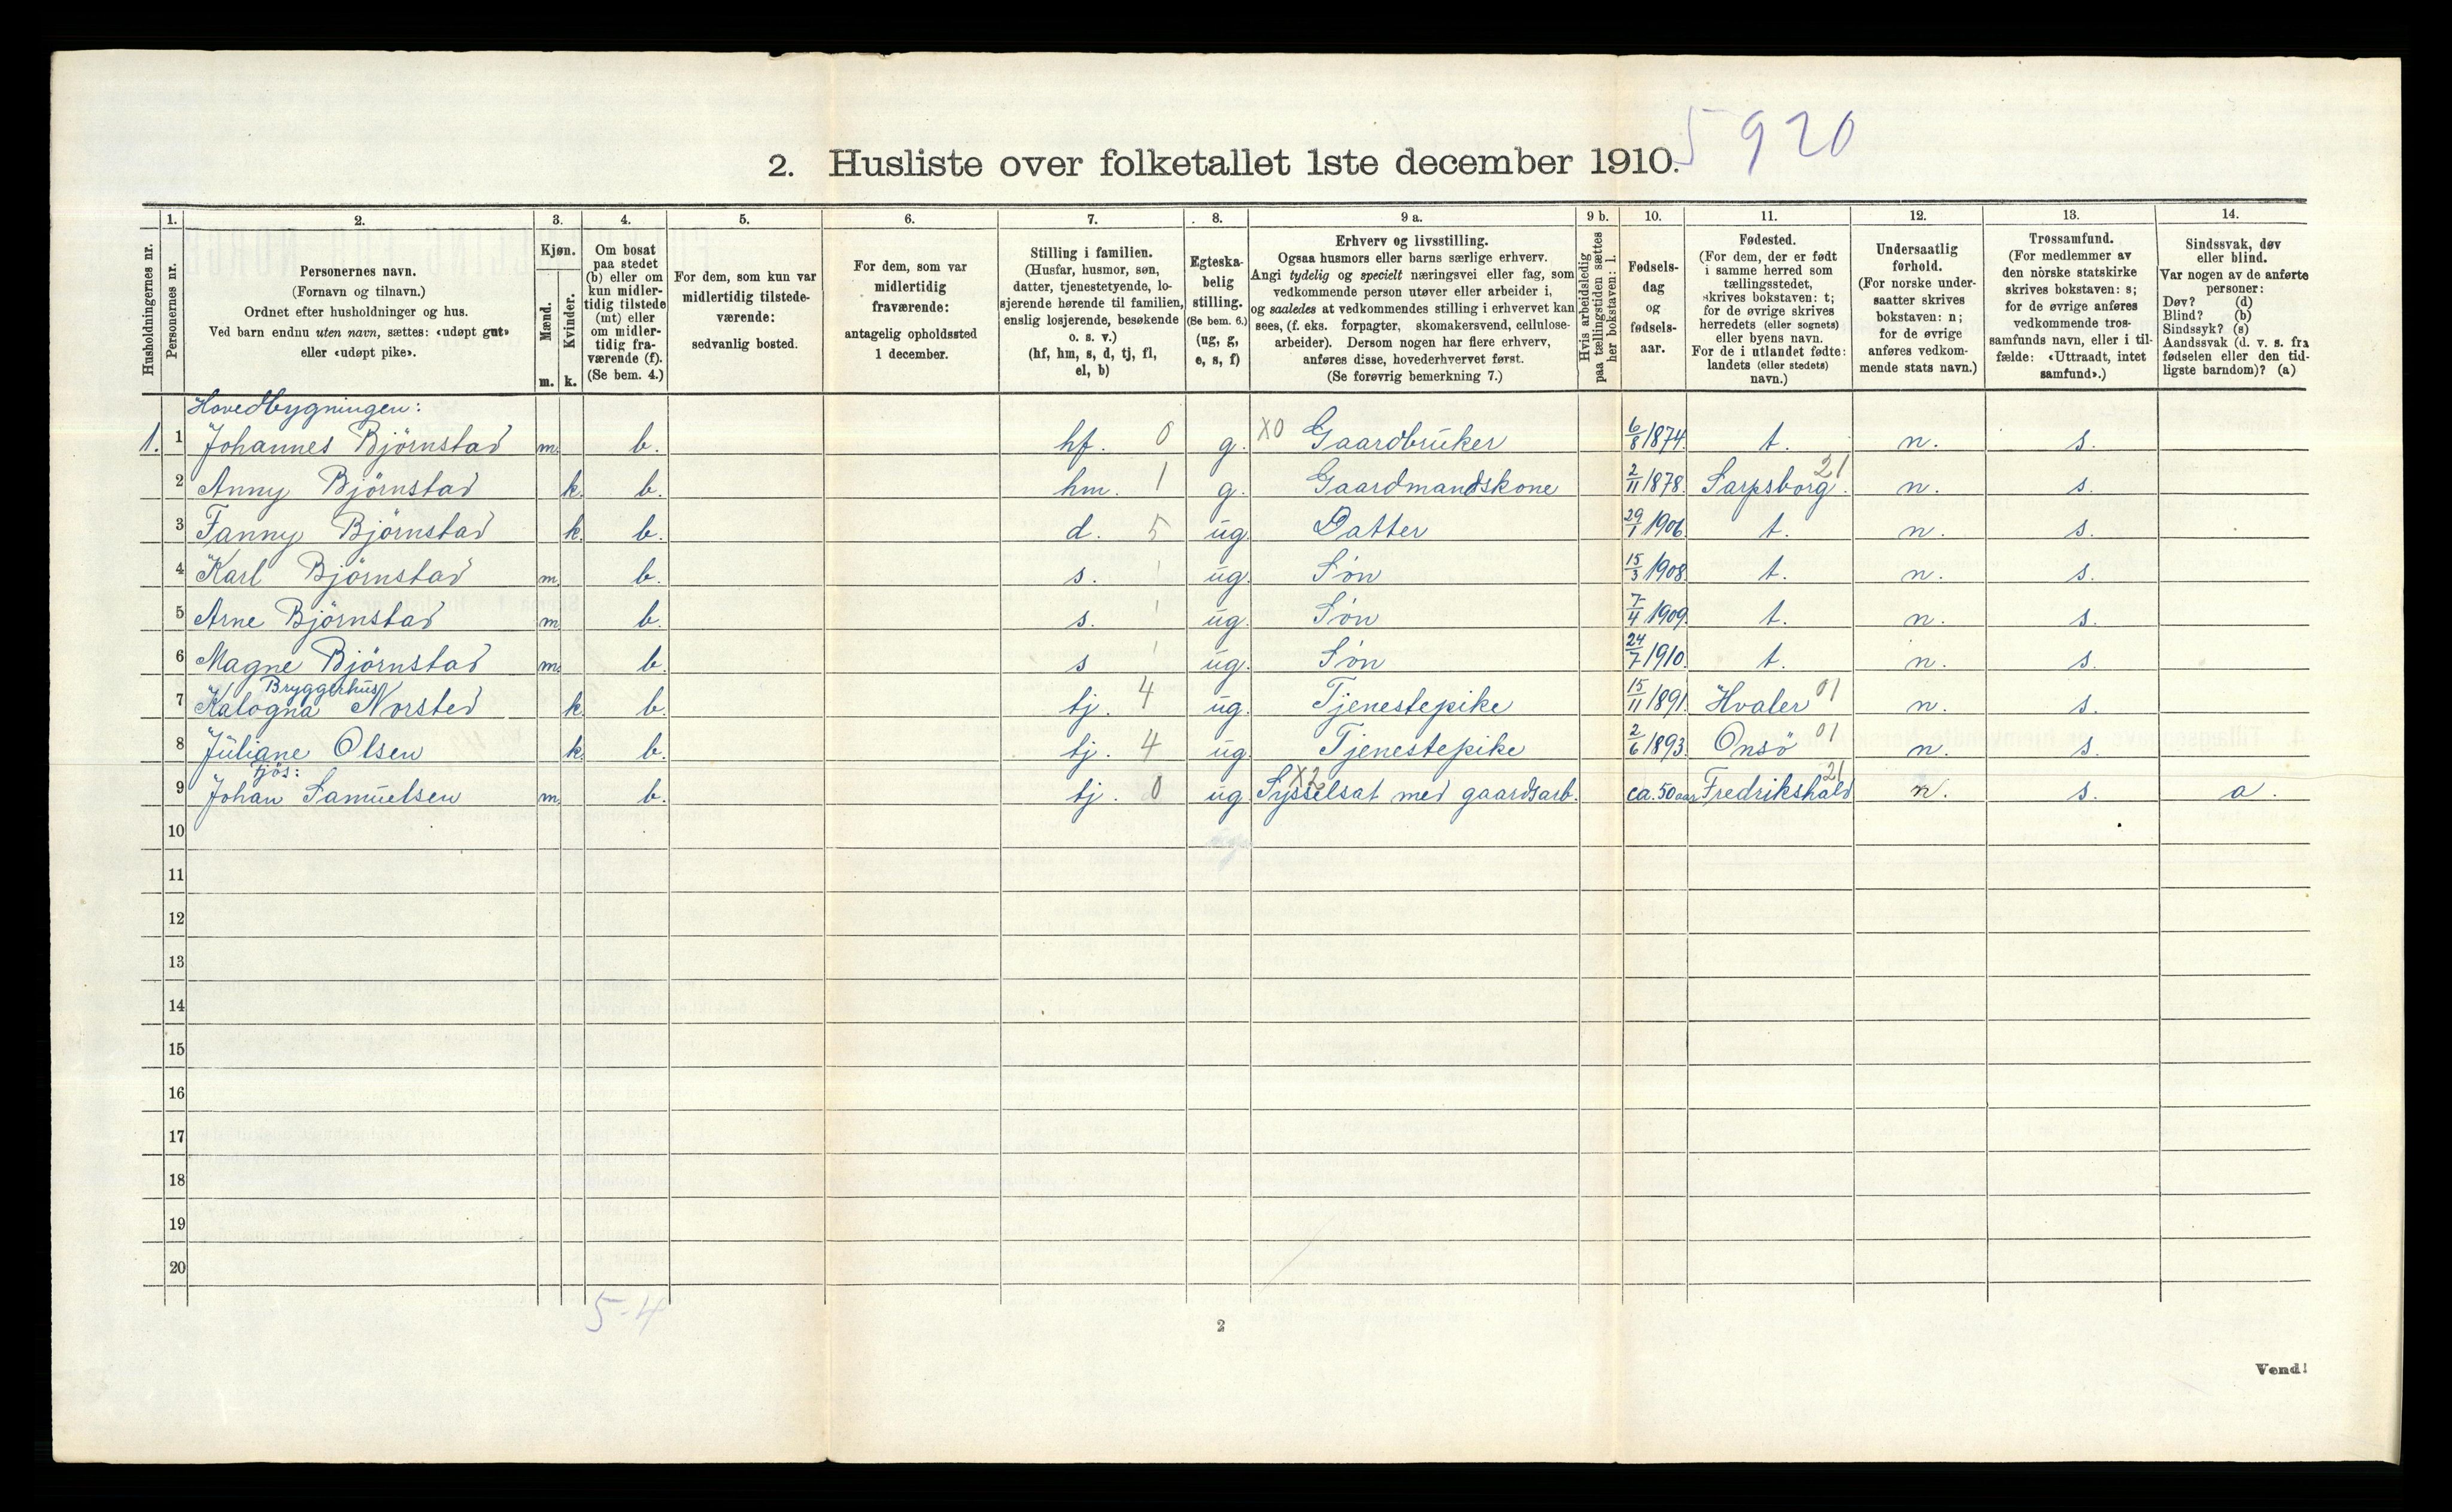 5 920
2. Husliste over folketallet 1ste december 1910.
Husholdningernes nr.
1. Personernes nr.
2. Personernes navn. (Fornavn og tilnavn.) Ordnet efter husholdninger og hus. Ved barn endnu uten navn, sættes: «udøpt gut» eller «udøpt pike».
3. Kjøn. Mænd. m. Kvinder. k.
4. Om bosat paa stedet (b) eller om kun midlertidig tilstede (mt) eller om midlertidig fraværende (f). (Se bem. 4.)
5. For dem, som kun var midlertidig tilstedeværende: sedvanlig bosted.
6. For dem, som var midlertidig fraværende: antagelig opholdssted 1 december.
7. Stilling i familien. (Husfar, husmor, søn, datter, tjenestetyende, losjerende hørende til familien, enslig losjerende, besøkende o. s. v.) (hf, hm, s, d, tj, fl, el, b)
8. Egteskabelig stilling. (Se bem. 6.) (ug, g, e, s, f)
9 a. Erhverv og livsstilling. Ogsaa husmors eller barns særlige erhverv. Angi tydelig og specielt næringsvei eller fag, som vedkommende person utøver eller arbeider i, og saaledes at vedkommendes stilling i erhvervet kan sees, (f. eks. forpagter, skomakersvend, cellulosearbeider). Dersom nogen har flere erhverv, anføres disse, hovederhvervet først. (Se forøvrig bemerkning 7.)
9 b. Hvis arbeidsledig paa tællingstiden sættes her bokstaven: l.
10. Fødselsdag og fødselsaar.
11. Fødested. (For dem, der er født i samme herred som tællingsstedet, skrives bokstaven: t; for de øvrige skrives herredets (eller sognets) eller byens navn. For de i utlandet fødte: landets (eller stedets) navn.)
12. Undersaatlig forhold. (For norske undersaatter skrives bokstaven: n; for de øvrige anføres vedkommende stats navn.)
13. Trossamfund. (For medlemmer av den norske statskirke skrives bokstaven: s; for de øvrige anføres vedkommende trossamfunds navn, eller i tilfælde: «Uttraadt, intet samfund».)
14. Sindssvak, døv eller blind. Var nogen av de anførte personer: Døv? (d) Blind? (b) Sindssyk? (s) Aandssvak (d. v. s. fra fødselen eller den tidligste barndom)? (a)
Hovedbygningen:
1. 1 Johannes Björnstad m. b. hf. 0 g. X0 Gaardbruker 6/8 1874. t. n. s.
2 Anny Björnstad k. b. hm. 1 g. Gaardmandskone 2/11 1878. Sarpsborg. 21 n. s.
3 Fanny Björnstad k. b. d. 5 ug. Datter 29/1 1906. t. n. s.
4 Karl Björnstad m. b. s. ug. Søn 15/3 1908. t. n. s.
5 Arne Björnstad m b. s. ug. Søn 7/4 1909. t. n. s.
6 Magne Björnstad m. b. s ug. Søn 24/7 1910. t. n. s.
Bryggerhus
7 Kalogna Norsted k. b. tj. 4 ug. Tjenestepike 15/11 1891. Hvaler 01 n. s.
8 Juliane Olsen k. b. tj. 4 ug. Tjenestepike 2/6 1893. Onsö 01 n. s.
Fjös:
9 Johan Samuelsen m. b. tj. 0 ug X2 Sysselsat med gaardsarb. ca. 50 aar Fredrikshald 21 n. s. a.
10
11
12
13
14
15
16
17
18
19
20
5-4
2
Vend!